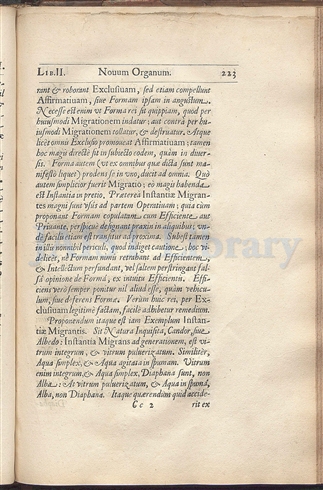 LIB. II. Nouum Organum. 223
rant & roborant Exclusiuam, sed etiam compellunt
Affirmatiuam, siue Formam ipsam in angustum.
Necesse est enim vt Forma rei sit quippiam, quod per
huiusmodi Migrationem indatur; aut contrà per hu-
iusmodi Migrationem tollatur, & destruatur. Atque
licèt omnis Exclusio promoueat Affirmatiuam; tamen
hoc magis directè fit in subiecto eodem, quàm in diuer-
sis. Forma autem (vt ex omnibus quæ dicta sunt ma-
nifestò liquet) prodens se in vno, ducit ad omnia. Quò
autem simplicior fuerit Migratio; eò magis habenda
est Instantia in pretio, Præterea Instantiæ Migran-
tes magni sunt vsus ad partem Operatiuam; quia cùm
proponant Formam copulatam cum Efficiente aut
Priuante, perspicuè designant praxin in aliquibus; vn-
de facilis etiam est transitus ad proxima. Subest tamen
in illis nonnihil periculi, quod indiget cautione: hoc vi-
delicèt, nè Formam nimis retrahant ad Efficientem,
& Intellectum perfundant, vel saltem perstringant fal-
sâ opinione de Formâ, ex intuitu Efficientis. Effici-
ens verò semper ponitur nil aliud esse, quàm vehicu-
lum, siue deferens Formæ. Verùm huic rei, per Ex-
clusiuam legitimè factam, facilè adhibetur remedium.
Proponendum itaque est iam Exemplum Instan-
tiæ Migrantis. Sit Natura Inquisita, Candor, siue
Albedo: Instantia Migrans ad generationem, est vi-
trum integrum, & vitrum puluerizatum. Similitèr,
Aqua simplex, & Aqua agitata in spumam. Vitrum
enim integrum, & Aqua simplex, Diaphana sunt, non
Alba: At vitrum puluerizatum, & Aqua in spumâ,
Alba, non Diaphana. Itaque quærendum quid accide-
Cc 2 rit ex
Library